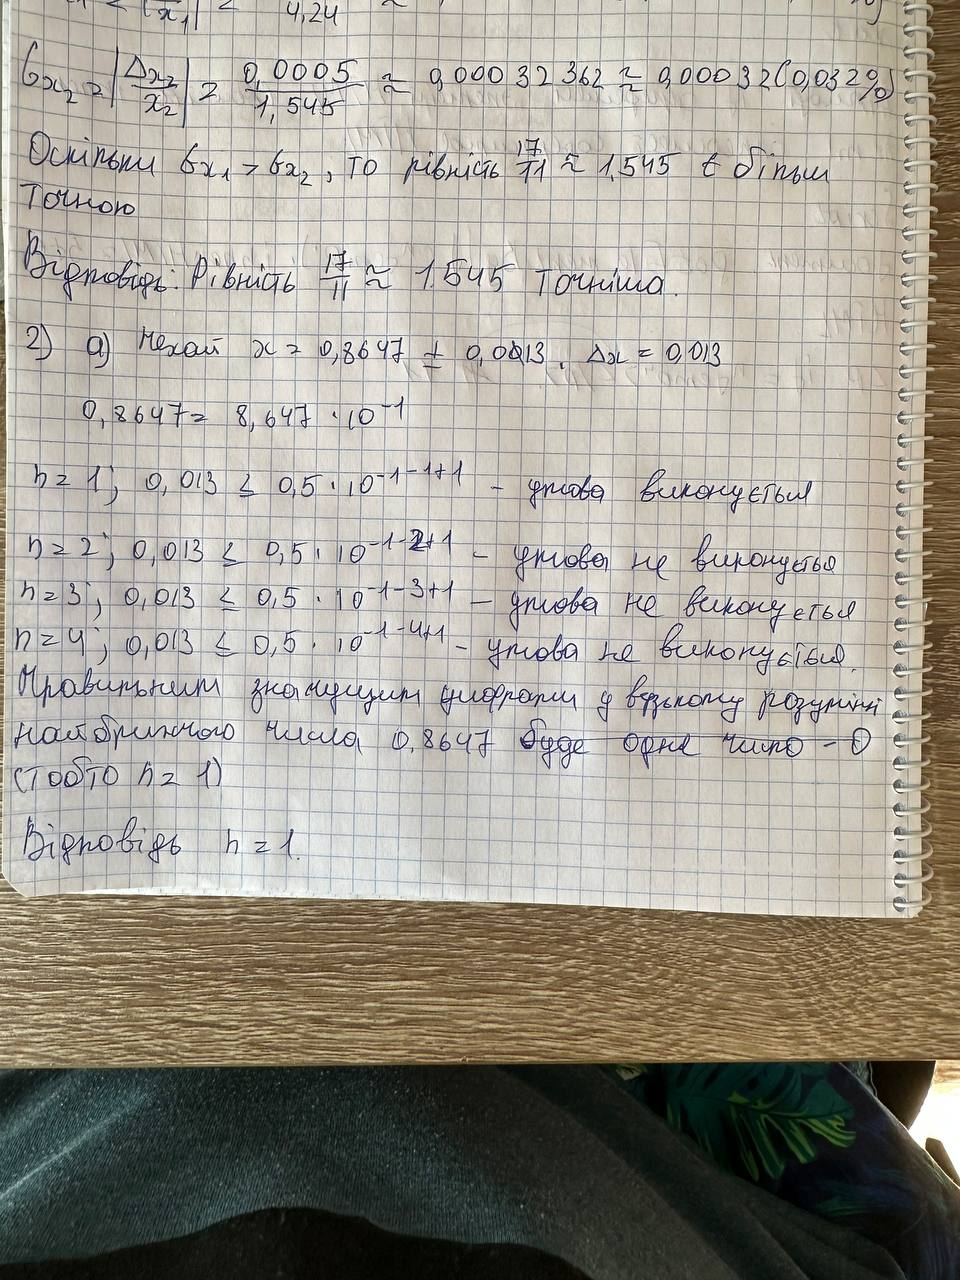 x₁ 4,24
δx₂ = |Δx₂/x₂| = 0,0005/1,545 ≈ 0,00032362 ≈ 0,00032(0,032%)
Оскільки δx₁ > δx₂, то рівність 17/11 ≈ 1,545 є більш
точною
Відповідь: Рівність 17/11 ≈ 1.545 точніша.
2) а) Нехай x = 0,8647 ± 0,0013. Δx = 0,013
0,8647 = 8,647 · 10⁻¹
n = 1; 0,013 ≤ 0,5 · 10⁻¹⁻¹⁺¹ - умова виконується
n = 2; 0,013 ≤ 0,5 · 10⁻¹⁻²⁺¹ - умова не виконується
n = 3; 0,013 ≤ 0,5 · 10⁻¹⁻³⁺¹ - умова не виконується
n = 4; 0,013 ≤ 0,5 · 10⁻¹⁻⁴⁺¹ - умова не виконується.
Правильним значущим цифрами у вузькому розумінні
наближчого числа 0,8647 буде одне число - 0
(тобто n = 1)
Відповідь n = 1.